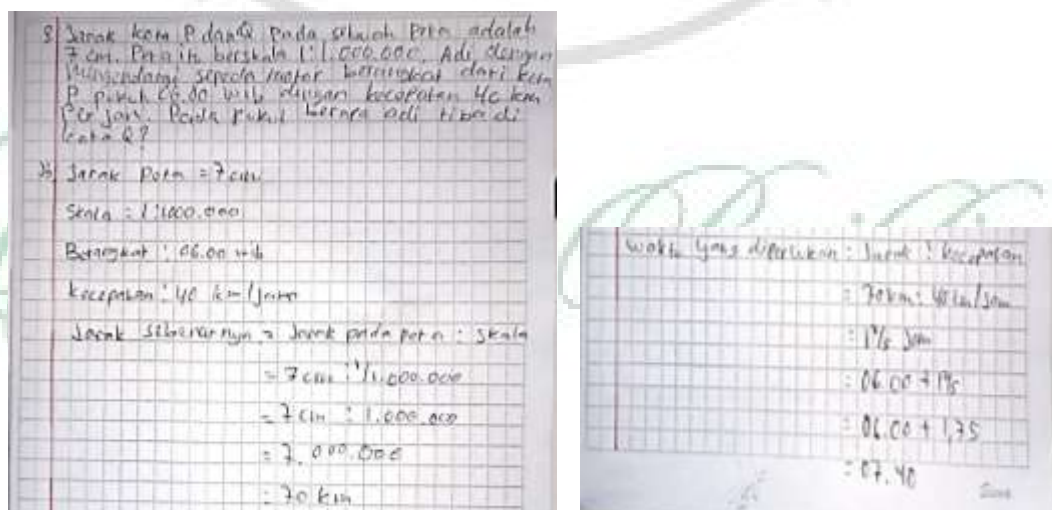 8 Jarak kota P dan Q pada sebuah peta adalah
7 cm. Peta ini berskala 1:1.000.000. Adi dengan
sepeda motor berangkat dari kota
P pukul 06.00 wib dengan kecepatan 40 km
per jam. Pada pukul berapa adi tiba di
kota Q?
Jarak Peta = 7 cm
Skala : 1:1000.000
Berangkat : 06.00 wib
Kecepatan : 40 km/jam
Jarak sebenarnya = Jarak pada peta : skala
= 7 cm : 1/1.000.000
= 7 cm : 1.000.000
= 7.000.000
= 70 km
waktu yang diperlukan : Jarak : kecepatan
: 70 km : 40 km/jam
: 06.00 + 1,75
: 07.40